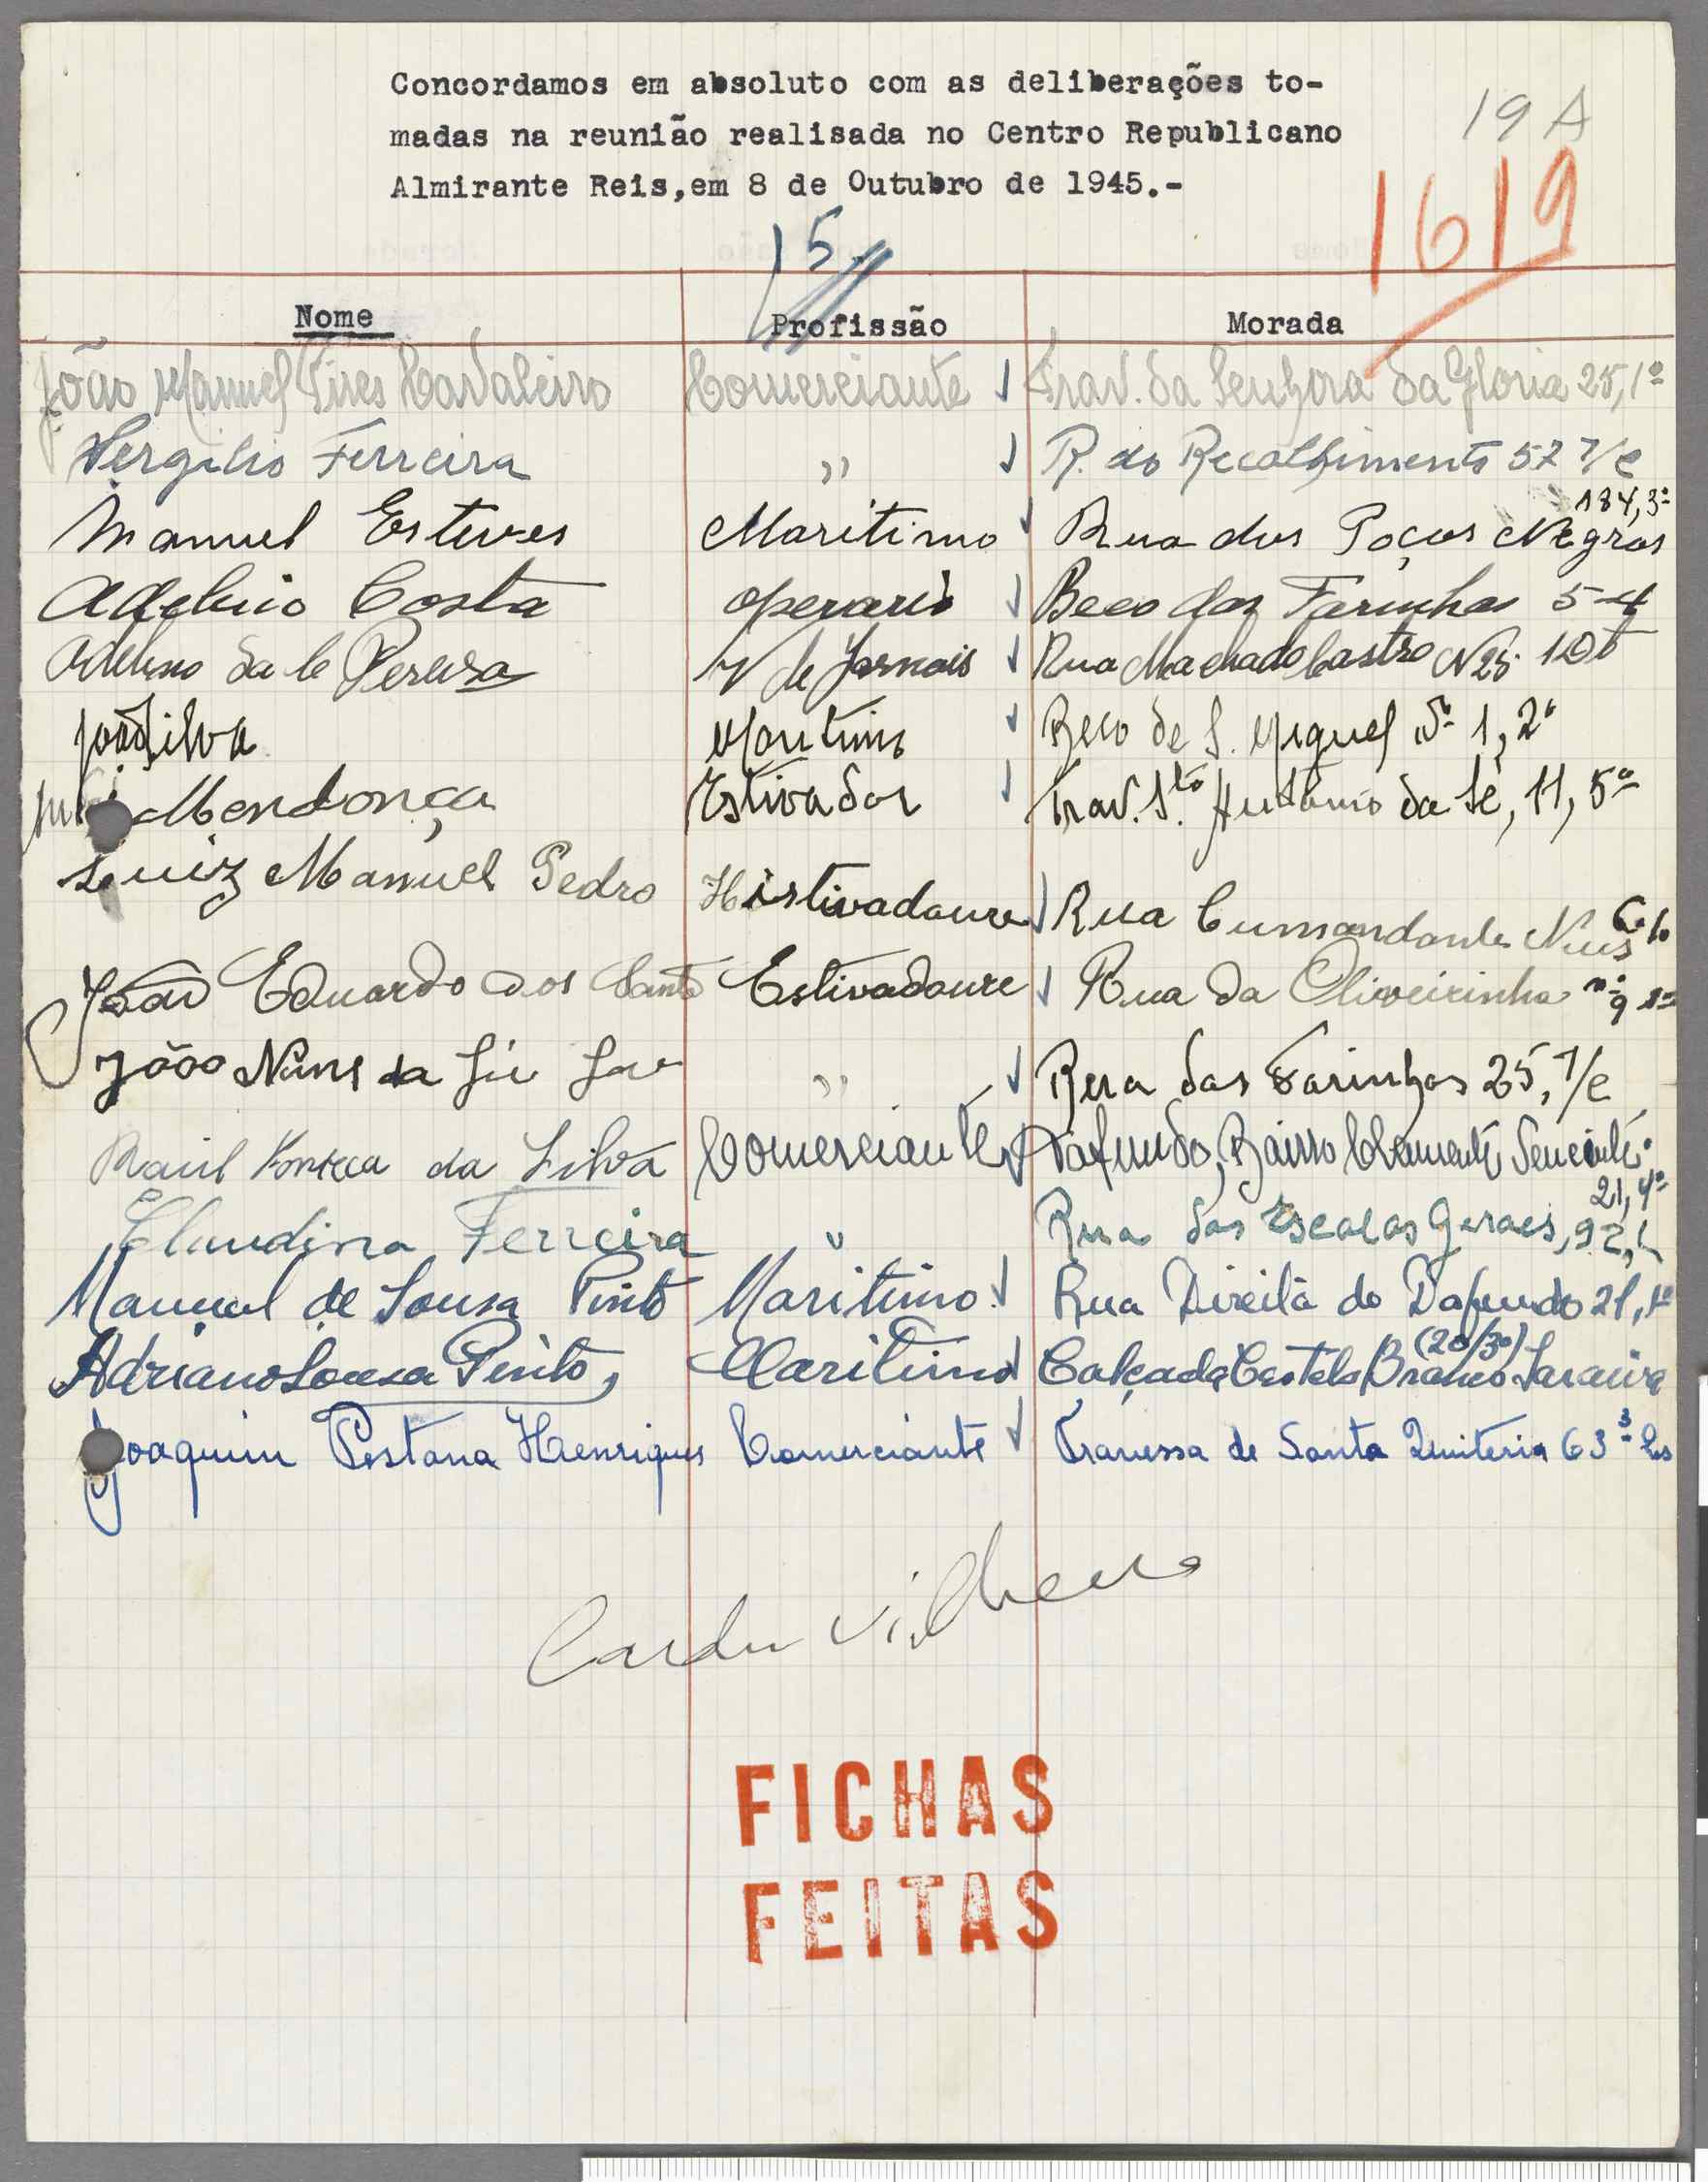 Concordamos em absoluto com as deliberações to-
madas na reunião realisada no Centro Republicano
Almirante Reis,em 8 de Outubro de 1945.-
19 A
1619
15
Nome Profissão Morada
João Manuel Pires Cavaleiro Comerciante Trav. da Senhora da Gloria 25, 1º
Vergilio Ferreira " R. do Recolhimento 57 r/c
184, 3º
Manuel Esteves Maritimo Rua dos Poços Negros
Adelino Costa operario Beco das Farinhas 5-4
Adelino da C Pereira V de Jornais Rua Machado Castro N 25 1 Dt
João Silva Maritimo Beco de S. Miguel Nº 1, 2º
Mendonça Estivador Trav. Stº. Antonio da Sé, 11, 5º
Luiz Manuel Pedro Histivadoure Rua Cumandante
João Eduardo dos Santo Estivadoure Rua da Oliveirinha nº 9 1º
João Nunes da " Rua das Farinhas 25, r/c
Raúl Fonseca da Silva Comerciante Dafundo, Bairro Clemente
21, 4º
Claudina Ferreira " Rua das Escolas Geraes, 92,
Manuel de Sousa Pinto Maritimo Rua Direita do Dafundo 21, 1º
(20/3º)
Adriano Sousa Pinto, Maritimo Calçada Castelo Branco Saraiva
Joaquim Pestana Henriques Comerciante Travessa de Santa Quiteria 63 3º
Vilhena
FICHAS
FEITAS